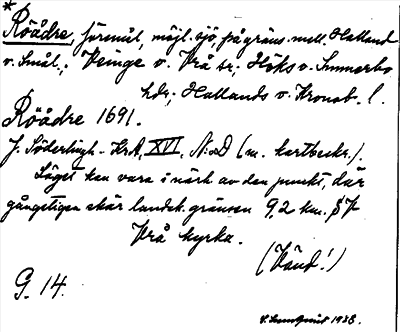 *
Röådre, försvul., möjl. sjö, på gräns. mell. Halland
o. Smål.; Veinge o. Vrå sr; Höks o. Sunnerbo
hdr; Hallands o. Kronob. l.
Röådre 1691.
J. Söderlingh - KrA, XVI, N:o D (m. kartbeskr.).
Läget kan vara i närh. av den punkt, där
gångstigen skär landsk. gränsen 9,2 km. SV
Vrå kyrka.
(Vänd!)
G. 14.
1938.